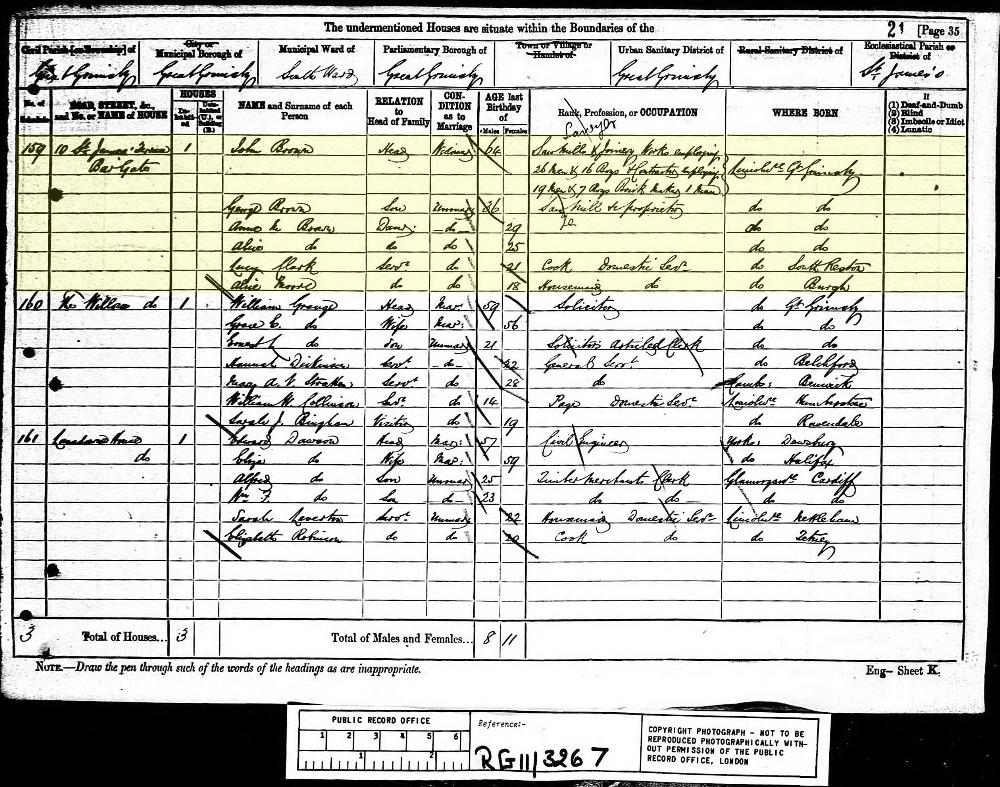 The undermentioned Houses are situate within the Boundaries of the
21 [Page 35
Civil Parish [or Township] of
City or Municipal Borough of
Municipal Ward of
Parliamentary Borough of
Town or Village or Hamlet of
Urban Sanitary District of
Rural Sanitary District of
Ecclesiastical Parish or District of
Great Grimsby Great Grimsby South Ward Great Grimsby Great Grimsby St. James's
No. of Schedule
ROAD, STREET, &c., and No. or NAME of HOUSE
HOUSES
Inhabited
Uninhabited (U.), or Building (B.)
NAME and Surname of each Person
RELATION to Head of Family
CONDITION as to Marriage
AGE last Birthday of
Males Females
Rank, Profession, or OCCUPATION
WHERE BORN
If
(1) Deaf-and-Dumb
(2) Blind
(3) Imbecile or Idiot
(4) Lunatic
Sawyer
159 10 St. James' Terrace 1 John Brown Head Widower 64 Saw Mills & Joinery Works employing
Bargate 26 Men & 16 Boys & Contractor employing Lincolnre. Gt Grimsby
19 Men & 7 Boys Brick Maker 1 Man
George Brown Son Unmar 36 Saw Mill proprietor do do
Anne M Brown Daur: do 29 do do
Alice do do do 25 do do
Lucy Clark Servt. do 21 Cook Domestic Servt. do South Reston
Alice Moore do do 18 Housemaid do do Burgh
160 The Willows do 1 William Grange Head Mar: 59 Solicitor do Gt Grimsby
Grace E. do Wife Mar: 56 do do
Ernest L do Son Unmar 21 Solicitors Articled Clerk do do
Hannah Dickinson Servt. do 22 General Servt. do Belchford
Mary A. V. Servt do 28 do Berwick
William H. Collinson Servt. do 14 Page Domestic Servt. Lincolnre.
Sarah J. Bingham Visitor do 19 do
161 1 Edward Dawson Head Mar: 57 Civil Engineer Yorks: Dewsbury
do Eliza do Wife Mar: 59 do Halifax
Alfred do Son Unmar 25 Timber Merchants Clerk Glamorgan Cardiff
Wm. F. do Son do 23 do do do do
Sarah Leverton Servt. Unmar 22 Housemaid Domestic Servt. Lincolnre Nettleham
Elizabeth Robinson do do 20 Cook do do Tetney
3 Total of Houses... 3 Total of Males and Females... 8 11
NOTE.—Draw the pen through such of the words of the headings as are inappropriate.
Eng— Sheet K.
PUBLIC RECORD OFFICE
1 2 3 4 5 6
1 2
Reference:-
RG11/3267
COPYRIGHT PHOTOGRAPH - NOT TO BE
REPRODUCED PHOTOGRAPHICALLY WITH-
OUT PERMISSION OF THE PUBLIC
RECORD OFFICE, LONDON